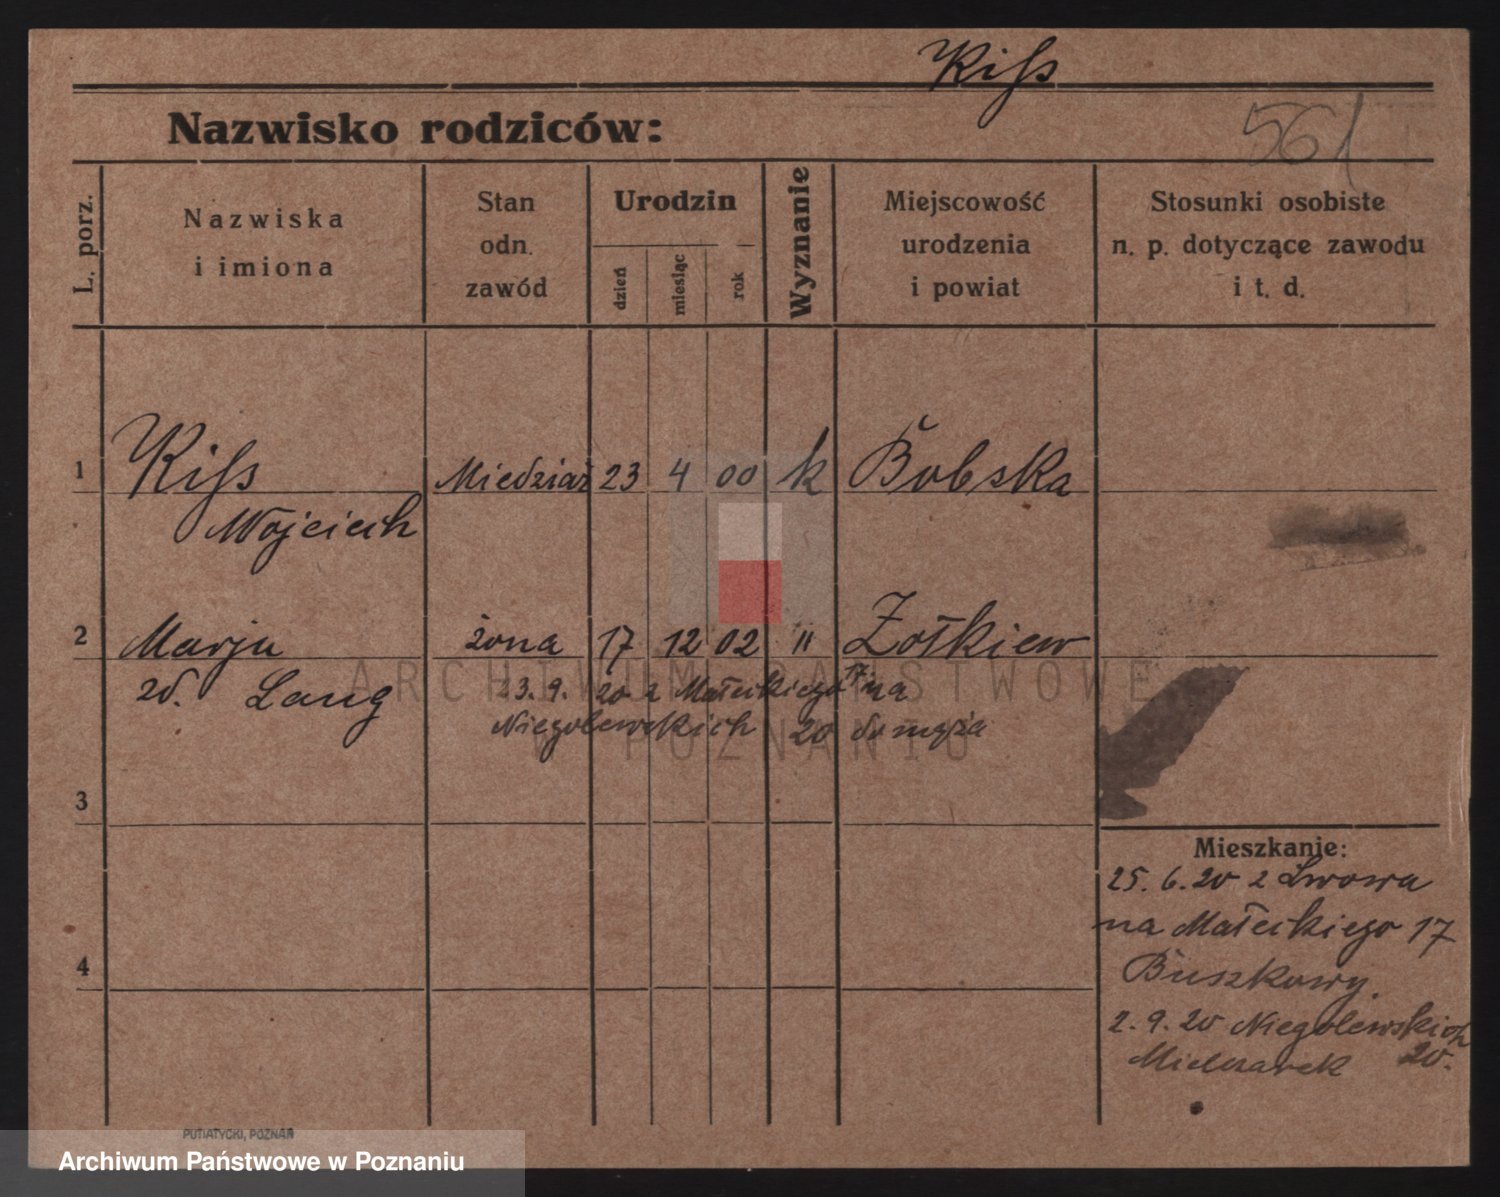 Kiss
561
Nazwisko rodziców:
L. porz.
Nazwiska
i imiona
Stan
odn.
zawód
Urodzin
dzień
miesiąc
rok
Wyznanie
Miejscowość
urodzenia
i powiat
Stosunki osobiste
n. p. dotyczące zawodu
i t. d.
1 Kiss Miedziaż 23 4 00 k Bobska
Wojciech
2 Marja żona 17 12 02 " Żołkiew
zd. Lang 23. 9. 20 z Małeckiego 17 na
Niegolewskich 20 do męża
3
4
Mieszkanie:
25. 6. 20 z Lwowa
na Małeckiego 17
Buszkowy.
2. 9. 20 Niegolewskich
Mielcarek 20.
PUTIATYCKI, POZNAŃ
ARCHIWUM PAŃSTWOWE
W POZNANIU
Archiwum Państwowe w Poznaniu